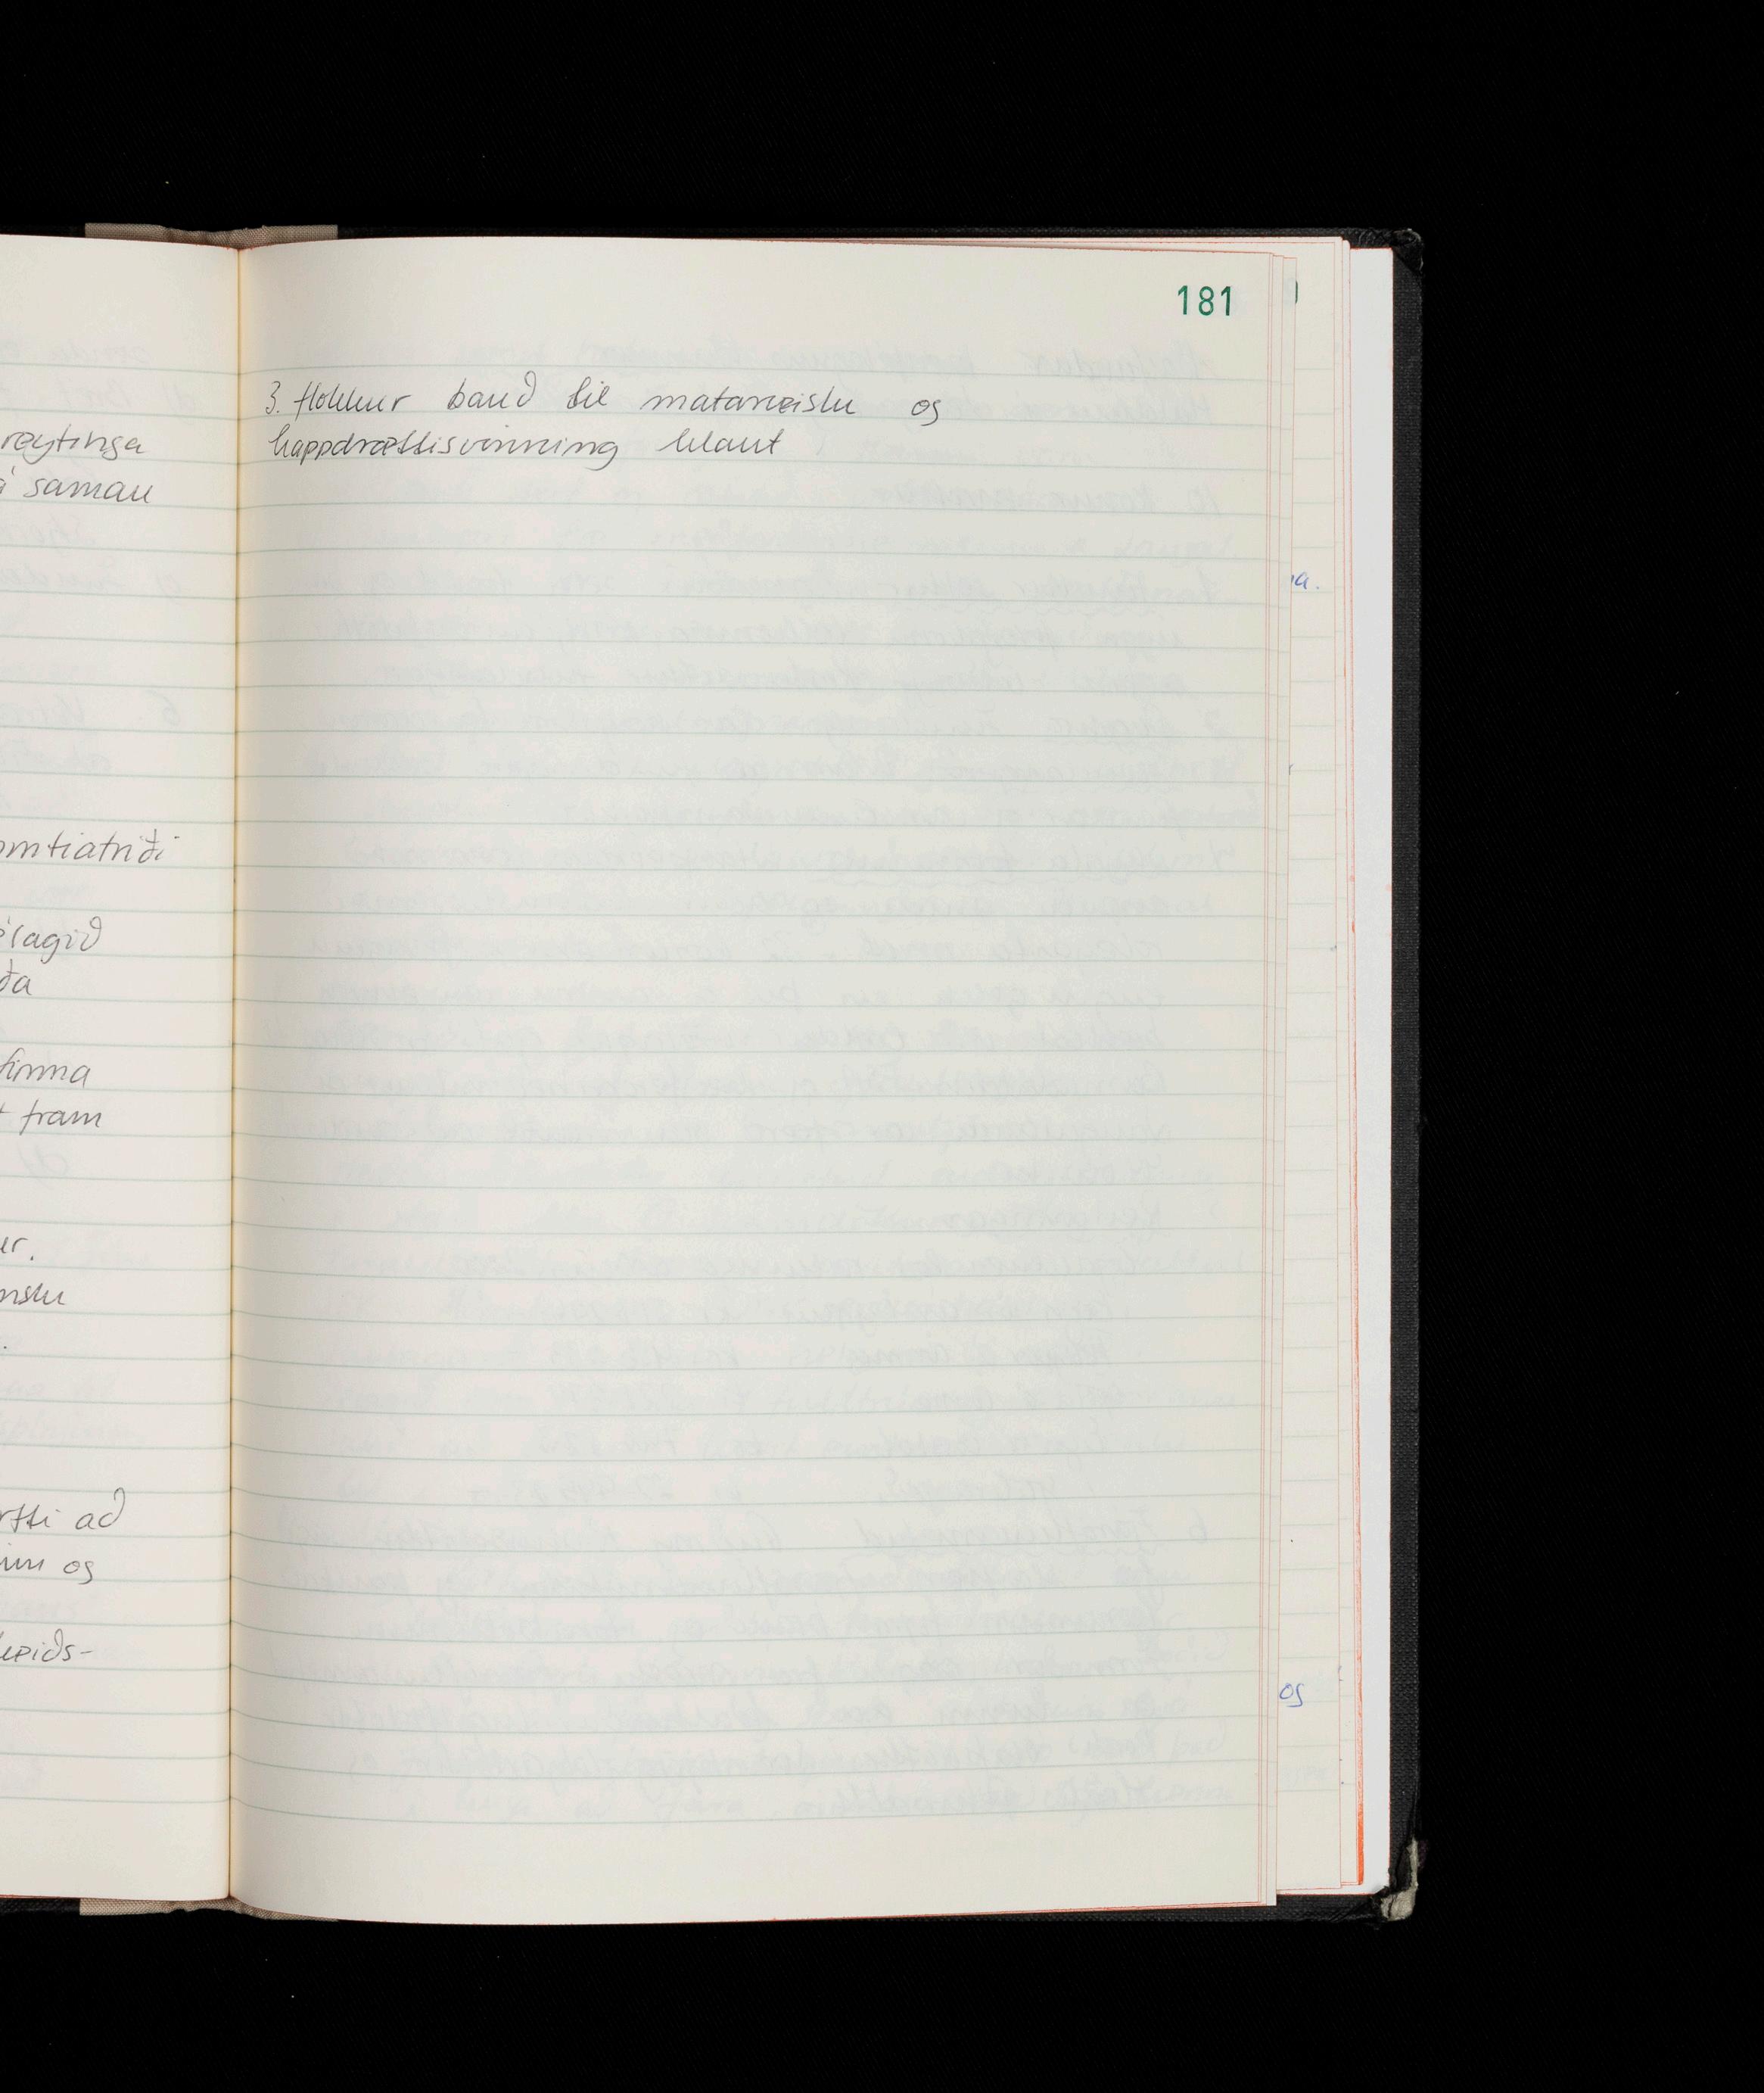 181
3. flokkur bauð til mataveislu og
happdrættisvinning hlaut
reytinga
á saman
omtiatriði
élagið
ða
finna
fram
ur.
nslu
rfti að
inn og
leiðs-
a.
og